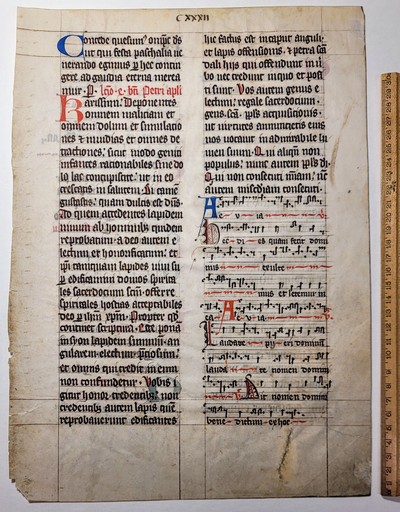 CXXXII
Concede quesum⁹ omp̄s ds
ut qui festa paschalia ue
nerando egimus p̄ hec contin
gere ad gaudia eterna merea
mur. P. lc̄o. e. bt̄i Petri apl̄i
Karissimi. Deponentes
omnem maliciam et
omnem dolum et simulacio
nes & inuidias et omnes de
tractiones. sicut modo geniti
infantes rationabiles sine do
lo lac concupiscite. ut in eo
crescatis in salutem. Si tamē
gustastis. quam dulcis est dn̄s
Ad quem accedentes lapidem
uiuum ab hominib; quidem
reprobatum. a deo autem e
lectum et honorificatum. et
ip̄i tanquam lapides uiui su
p̄ edificamini domos spirita
les sacerdocium sanc̄. offerre
spiritales hostias acceptabiles
deo p̄ ih̄m xp̄m. Propter qd̄
continet scriptura. Ecce ponā
in syon lapidem summū. an
gularem. electum. p̄ciosum.
et omnis qui credit in eum
non confundetur. Vobis i
gitur honor credentib;. non
credentib; autem lapis quē
reprobauerunt edificantes
hic factus est in caput anguli.
et lapis offensionis. & petra scā
dali hijs qui offendunt in u̇
bo nec credunt in quo et posi
ti sunt. Vos autem genus e
lectum. regale sacerdocium.
gens. scā. pl̄s acquisicionis.
ut uirtutes annuncietis eius
qui de tenebris uos
nos uocauit in admirabile lu
men suum. Qui aliqn̄ non
populus. nunc autem pl̄s di.
Qui non consecuti miām. nūc
autem misc̄diam consecuti.
Ae u ia
Hec di es quam fecit domi
nus exulte
mus et letemur in
ea. Ae u ia
Laudate pu eri dominū
lauda te nomen domini
Sit nomen domini
bene dictum ex hoc